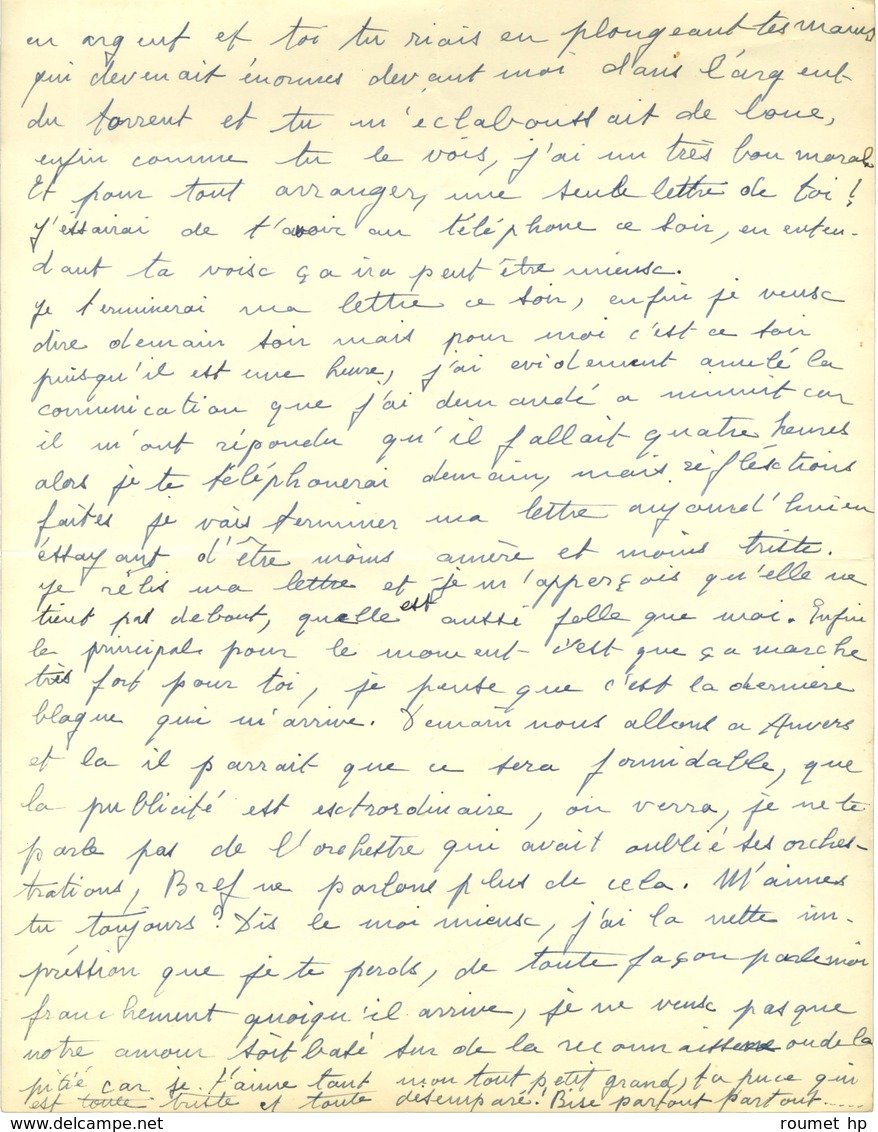 en argent et toi tu riais en plongeant tes mains
qui devenait énormes devant moi dans l'argent
du torrent et tu m'éclaboussait de boue,
enfin comme tu le vois, j'ai un très bon moral.
Et pour tout arranger, une seule lettre de toi !
J'éssairai de t'avoir au téléphone ce soir, en enten-
dant ta voisc ça ira peut être miensc.
Je terminerai ma lettre ce soir, enfin je veusc
dire demain soir mais pour moi c'est ce soir
puisqu'il est une heure, j'ai evidement anulé la
comunication que j'ai demandé a minuit car
il m'ont répondu qu'il fallait quatre heures
alors je te téléphonerai demain, mais refléctions
faites je vais terminer ma lettre aujourd'hui en
éssayant d'être moins amère et moins triste.
Je rélis ma lettre et je m'apperçois qu'elle ne
tient pas debout, quelle est aussi folle que moi. Enfin
le principal pour le moment c'est que ça marche
très fort pour toi, je pense que c'est la dernière
blague qui m'arrive. Demain nous allons a Anvers
et la il parrait que ce sera formidable, que
la publicité est esctrordinaire, on verra, je ne te
parle pas de l'orchestre qui avait oublié ses orches-
trations, Bref ne parlons plus de cela. M'aimes
tu toujours ? Dis le moi miensc, j'ai la nette im-
préssion que je te perds, de toute façon parle moi
franchement quoiqu'il arrive, je ne veusc pas que
notre amour soit basé sur de la reconnaissence ou de la
pitié car je t'aime tant mon tout petit grand, ta puce qui
est toute triste et toute désemparé ! Bise partout partout.....
roumet hp